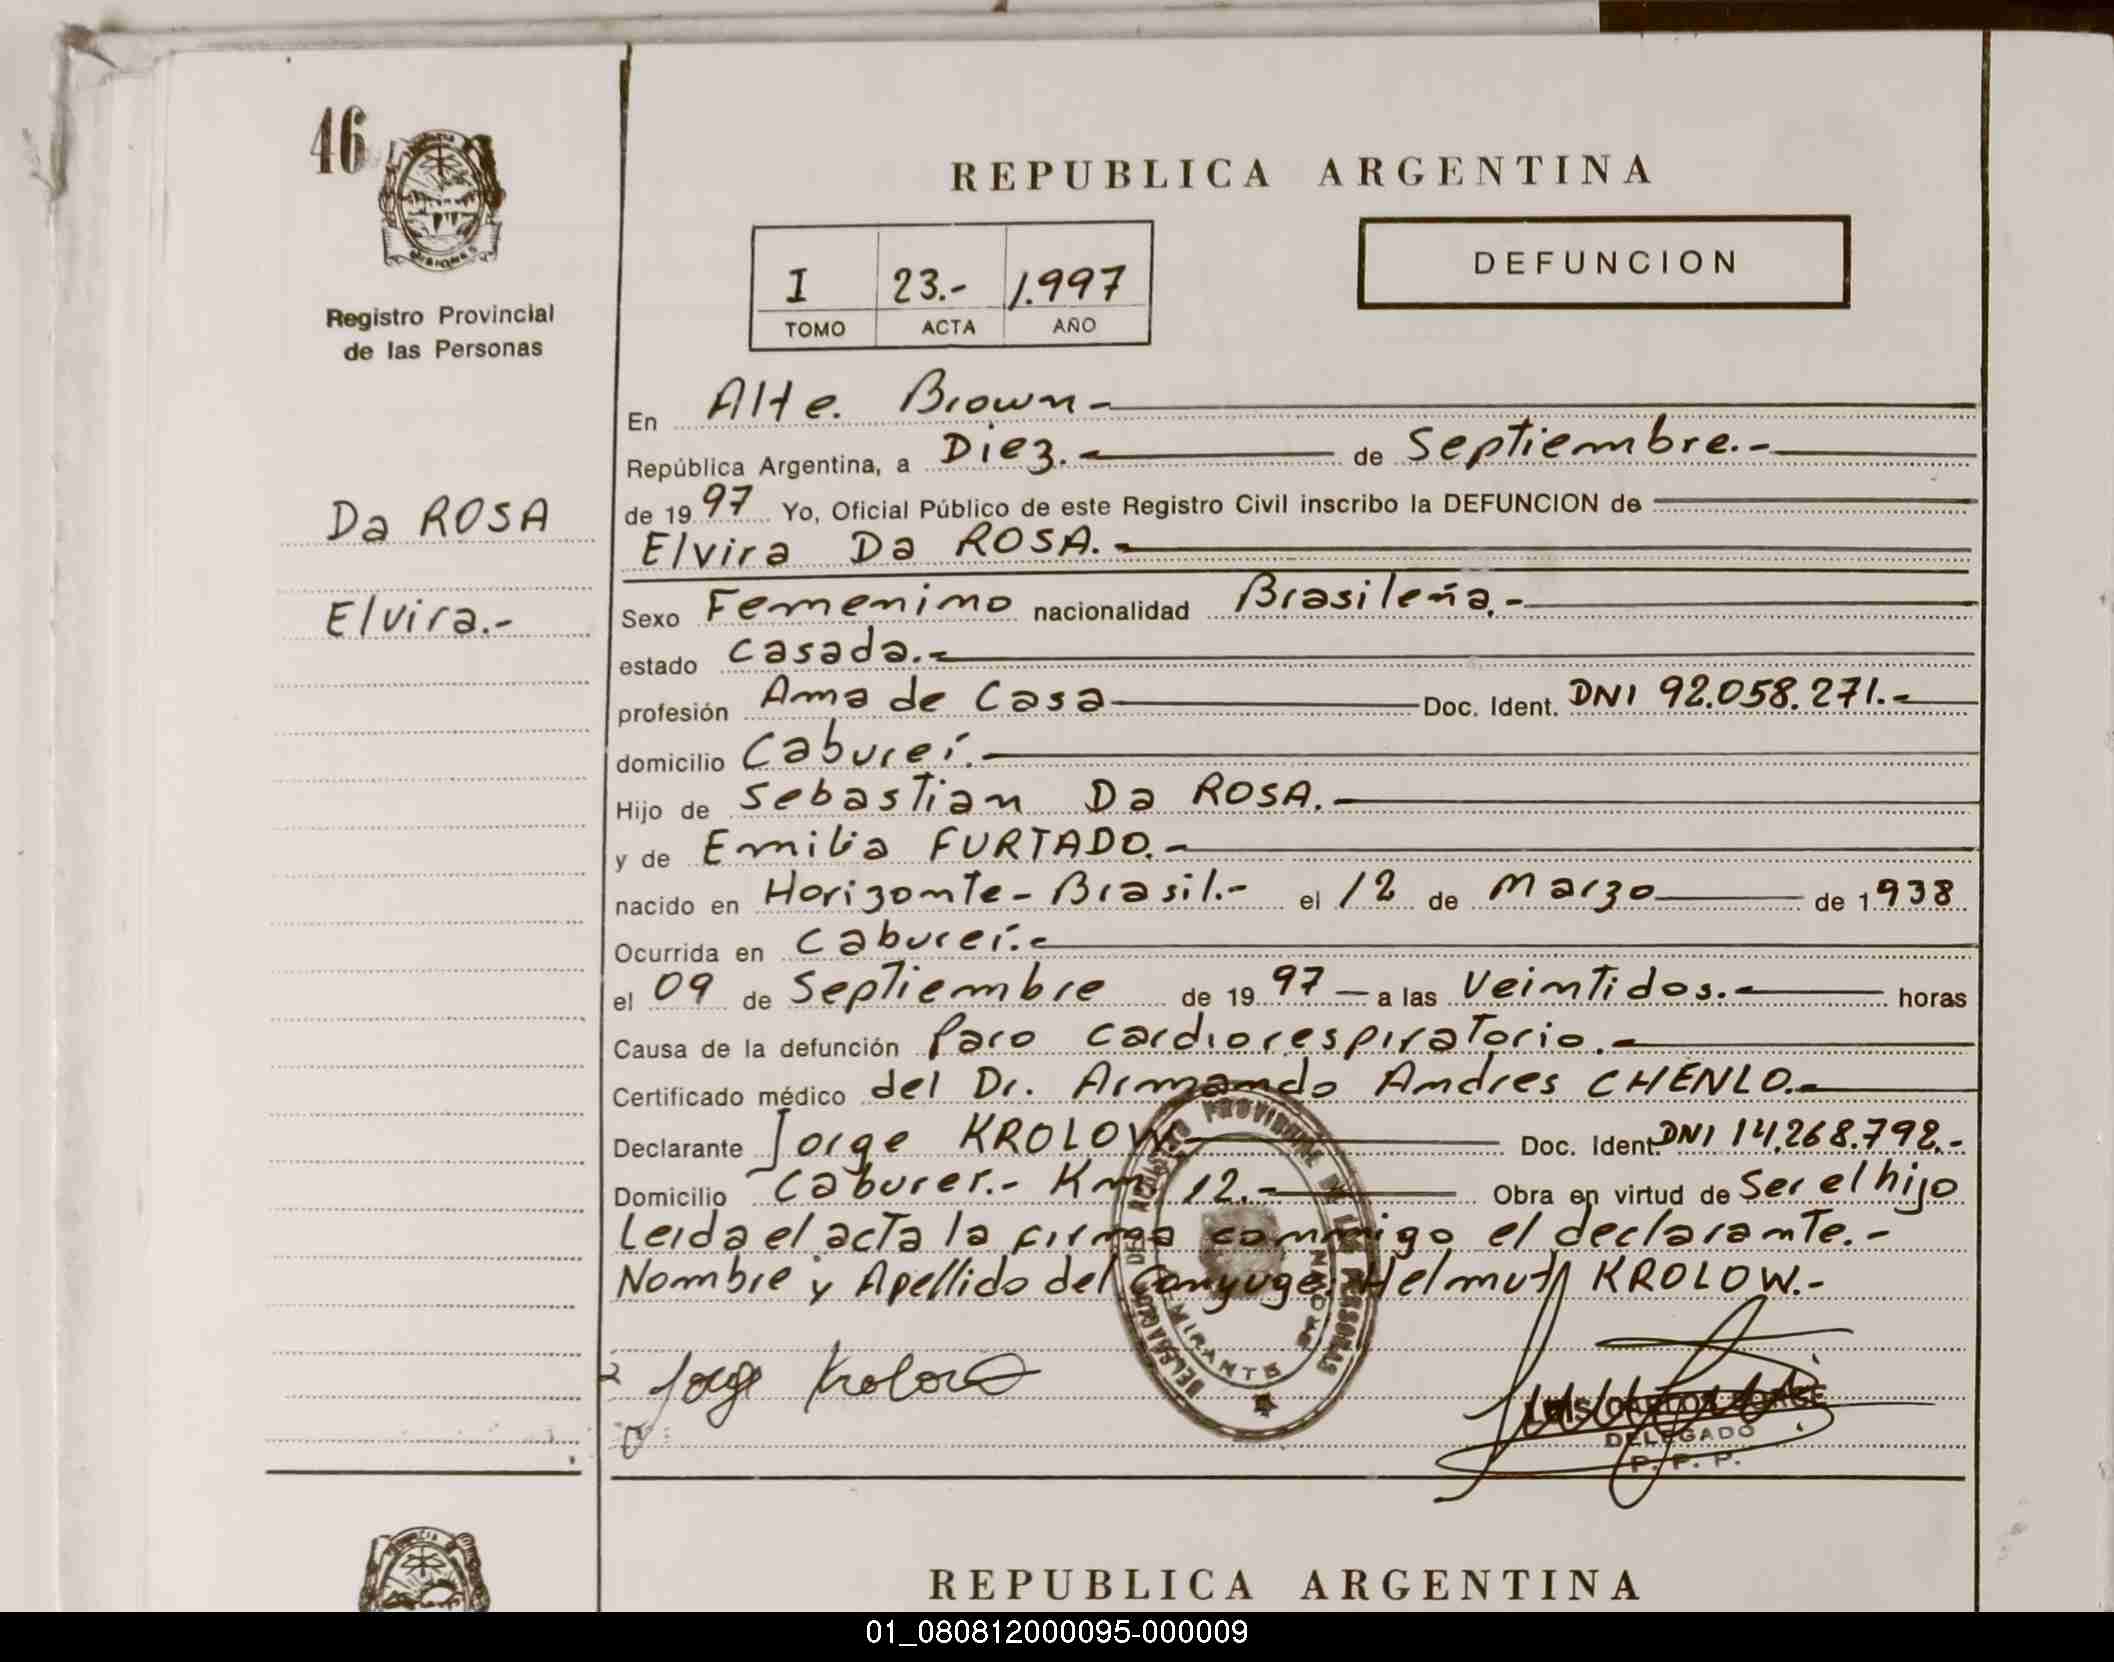 46
REPUBLICA ARGENTINA
DEFUNCION
I 23.- 1.997
TOMO ACTA AÑO
Registro Provincial
de las Personas
Da ROSA
Elvira.-
En Alte. Brown-
República Argentina, a Diez.- de Septiembre.-
de 1997 Yo, Oficial Público de este Registro Civil inscribo la DEFUNCION de
Elvira Da ROSA.-
Sexo Femenino nacionalidad Brasileña.-
estado casada.-
profesión Ama de Casa Doc. Ident. DNI 92.058.271.-
domicilio Cabureí.-
Hijo de Sebastian Da ROSA.-
y de Emilia FURTADO.-
nacido en Horizonte-Brasil.- el 12 de Marzo de 1938
Ocurrida en Cabureí.-
el 09 de Septiembre de 1997 a las Veintidos.- horas
Causa de la defunción Paro cardiorespiratorio.-
Certificado médico del Dr. Armando Andres CHENLO.-
Declarante Jorge KROLOW Doc. Ident. DNI 14.268.792.-
Domicilio Cabureí.- Km 12.- Obra en virtud de Ser el hijo
Leida el acta la firma conmigo el declarante.-
Nombre y Apellido del Conyuge: Helmuth KROLOW.-
DELEGACION DEL REGISTRO PROVINCIAL DE LAS PERSONAS
ALMIRANTE BROWN
Jorge Krolow
LUIS CARLOS
DELEGADO
P. P. P.
REPUBLICA ARGENTINA
01_080812000095-000009